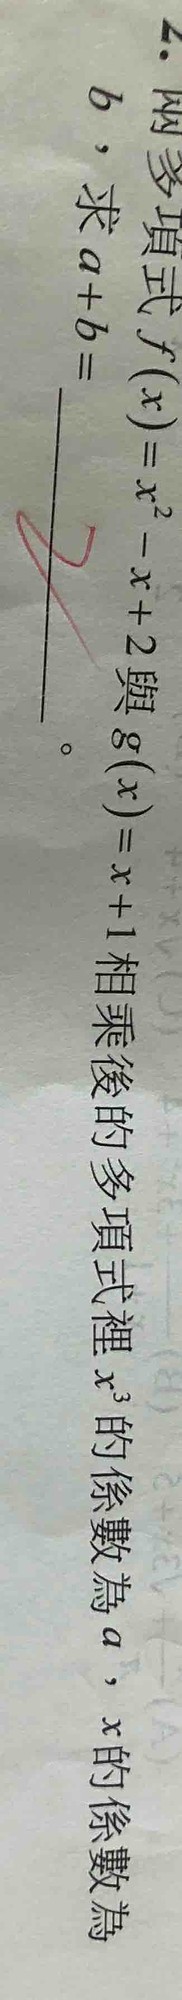 2. 兩多項式 f(x)=x²-x+2與 g(x)=x+1相乘後的多項式裡 x³的係數為 a，x的係數為
b，求 a+b=__________。
2